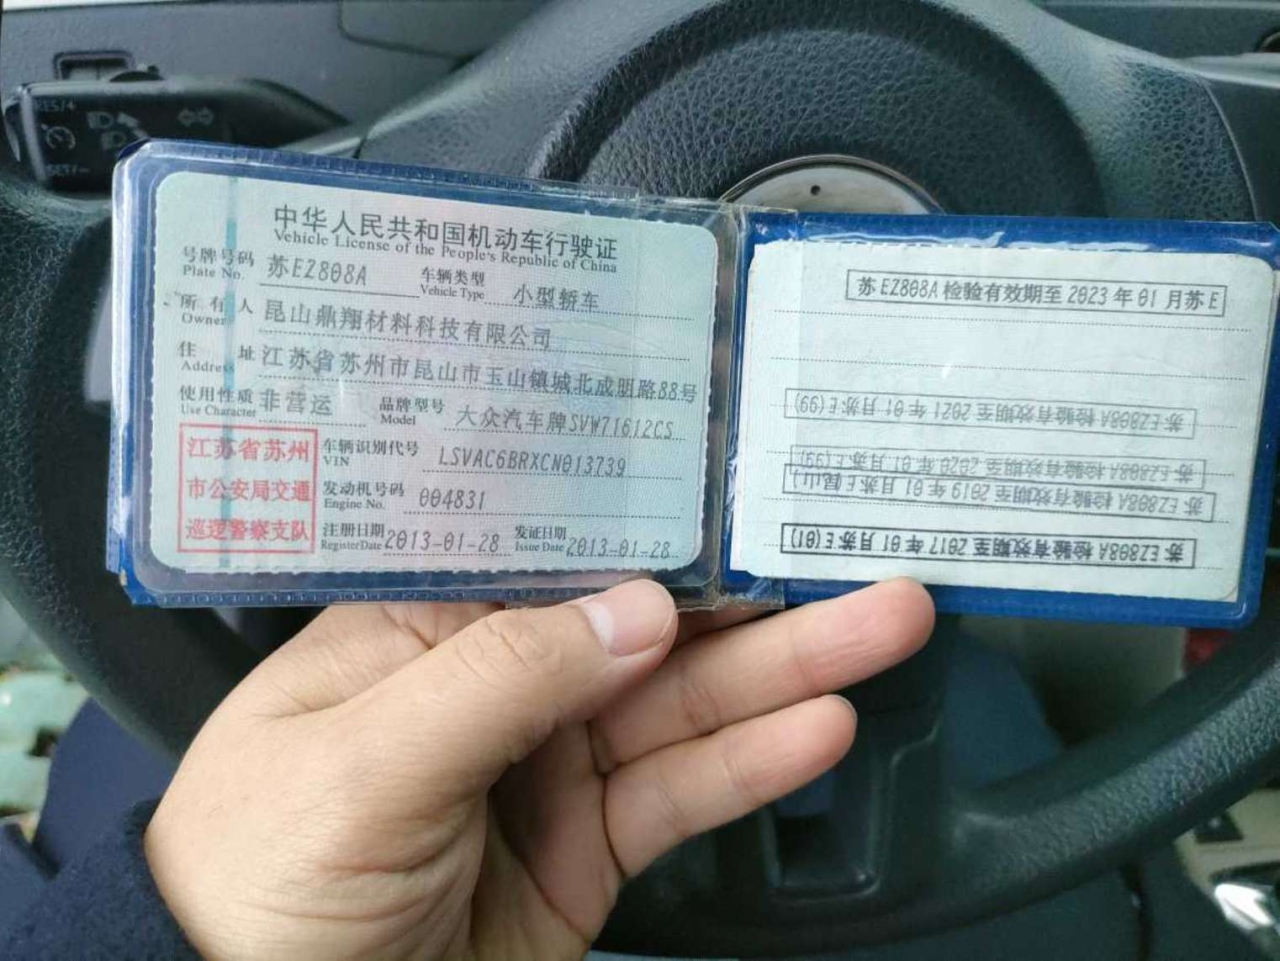 RES/+
SET/-
中华人民共和国机动车行驶证
Vehicle License of the People's Republic of China
号牌号码 苏EZ808A 车辆类型 小型轿车
Plate No. Vehicle Type
所有人 昆山鼎翔材料科技有限公司
Owner
住址 江苏省苏州市昆山市玉山镇城北成明路88号
Address
使用性质 非营运 品牌型号 大众汽车牌SVW71612CS
Use Character Model
江苏省苏州
市公安局交通
巡逻警察支队
车辆识别代号 LSVAC6BRXCN013739
VIN
发动机号码 004831
Engine No.
注册日期 2013-01-28 发证日期 2013-01-28
Register Date Issue Date
苏EZ808A检验有效期至2023年01月苏E
苏EZ808A检验有效期至2021年01月苏E(99)
苏EZ808A检验有效期至2020年01月苏E(99)
苏EZ808A检验有效期至2019年01月苏E(昆山)
苏EZ808A检验有效期至2017年01月苏E(01)